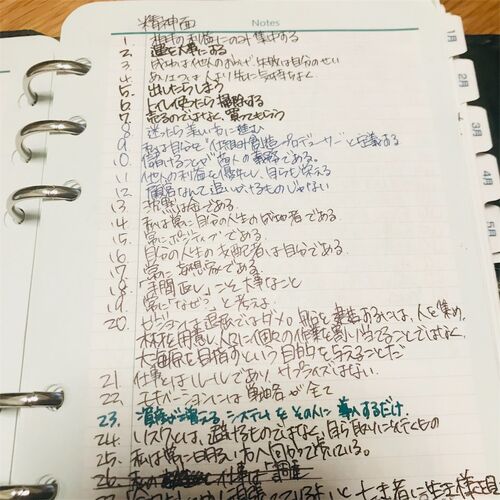 精神面
Notes
1. 相手の利益にのみ集中する
2. 運を大事にする
3. 成功は他人のおかげ 失敗は自分のせい
4. あいさつは人より先に元気よく
5. 出したらしまう
6. トイレ使ったら掃除する
7. 売るのではなく、買ってもらう
8. 迷ったら楽しい方に進む
9. 私は自らを"仕組み創造プロデューサー"と定義する
10. 儲けることが商人の義務である。
11. 他人の利益を優先し、自らも栄える
12. 風呂なんて追いかけるものじゃない
13. 沈黙は金である。
14. 私は常に自分の人生の成功者である
15. 常にポジティブである。
16. 自分の人生の支配者は自分である。
17. 常に妄想家である。
18. 「手間返し」こそ大事なこと
19. 常に「なぜ?」と考えよ。
20. ビジョンは直感ではダメ。船を建造するには、人を集め、
材料を用意し人々に個々の作業を割り当てることではなく、
大海原を目指すという目的を与えることだ
21. 仕事とはルールであり、サプライズはない。
22. モチベーションには 全て
23. 資産が増えるシステムをその人に導入するだけ。
24. リスクとは、避けるものではなく、自ら取りに行くもの
25. 私は常に明るい方へ向って歩いている。
26. 私の 仕事は
1月
2月
3月
4月
5月